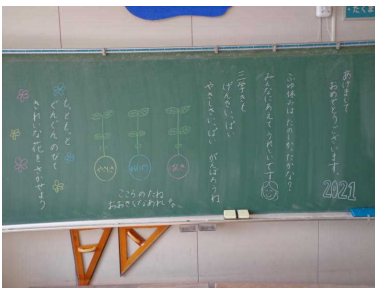 あけまして
おめでとうございます。
2021
ふゆ休みは たのしかったかな？
みんなにあえて うれしいです
三学きも
げんきいっぱい
やさしさいっぱい がんばろうね
こころのたね
おおきくなあれ
もっともっと
ぐんぐんのびて
きれいな花をさかせよう